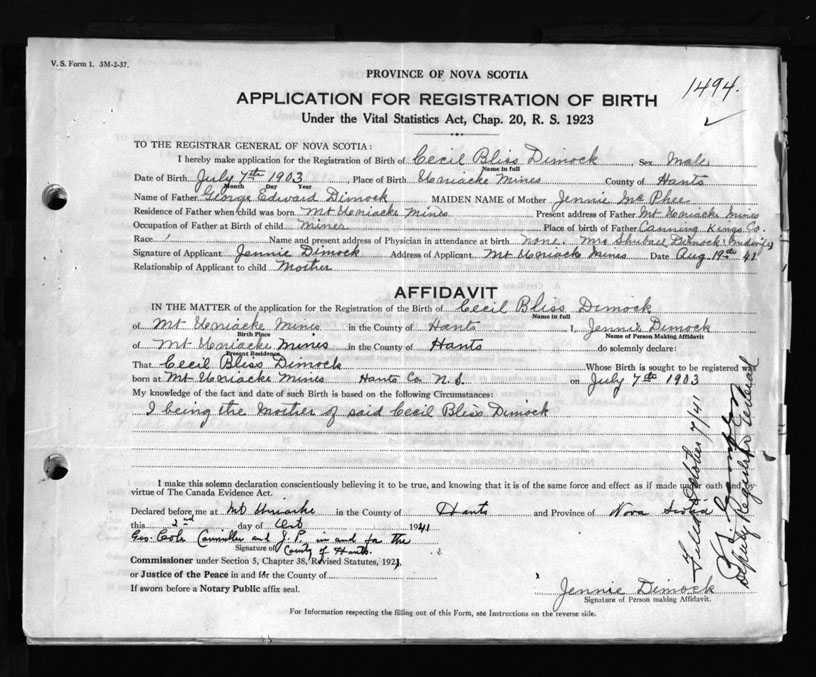 V. S. Form 1. 3M-2-37.
PROVINCE OF NOVA SCOTIA
1494.
APPLICATION FOR REGISTRATION OF BIRTH
Under the Vital Statistics Act, Chap. 20, R. S. 1923
TO THE REGISTRAR GENERAL OF NOVA SCOTIA:
I hereby make application for the Registration of Birth of Cecil Bliss Dimock, Sex Male
Name in full
Date of Birth July 7th 1903, Place of Birth Uniacke Mines County of Hants
Month Day Year
Name of Father George Edward Dimock MAIDEN NAME of Mother Jennie McPhee
Residence of Father when child was born Mt Uniacke Mines Present address of Father Mt Uniacke Mines
Occupation of Father at Birth of child miner Place of birth of Father Canning Kings Co.
Race Name and present address of Physician in attendance at birth none. Mrs Shubael Dimock (Midwife)
Signature of Applicant Jennie Dimock Address of Applicant Mt Uniacke Mines Date Aug. 19th 41
Relationship of Applicant to child Mother
AFFIDAVIT
IN THE MATTER of the application for the Registration of the Birth of Cecil Bliss Dimock
Name in full
of Mt Uniacke Mines in the County of Hants I, Jennie Dimock
Birth Place Name of Person Making Affidavit
of Mt Uniacke Mines in the County of Hants do solemnly declare:
Present Residence
That Cecil Bliss Dimock Whose Birth is sought to be registered was
born at Mt Uniacke Mines Hants Co N.S. on July 7th 1903
My knowledge of the fact and date of such Birth is based on the following Circumstances:
I being the Mother of said Cecil Bliss Dimock
I make this solemn declaration conscientiously believing it to be true, and knowing that it is of the same force and effect as if made under oath and by
virtue of The Canada Evidence Act.
Declared before me at Mt Uniacke in the County of Hants and Province of Nova Scotia
this 2nd day of Oct 1941
Geo. Cole Councillor and J.P. in and for the
Signature of County of Hants.
Commissioner under Section 5, Chapter 38, Revised Statutes, 1923,
or Justice of the Peace in and for the County of
If sworn before a Notary Public affix seal.
Jennie Dimock
Signature of Person making Affidavit.
For Information respecting the filling out of this Form, see Instructions on the reverse side.
Filed October 7/41
Deputy Registrar General